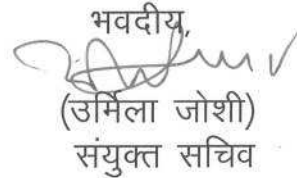 भवदीय,
(उर्मिला जोशी)
संयुक्त सचिव